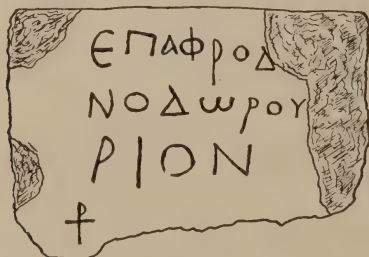 ЄΠΑΦΡΟΔ
ΝΟΔωΡΟΥ
ΡΙΟΝ
⳨